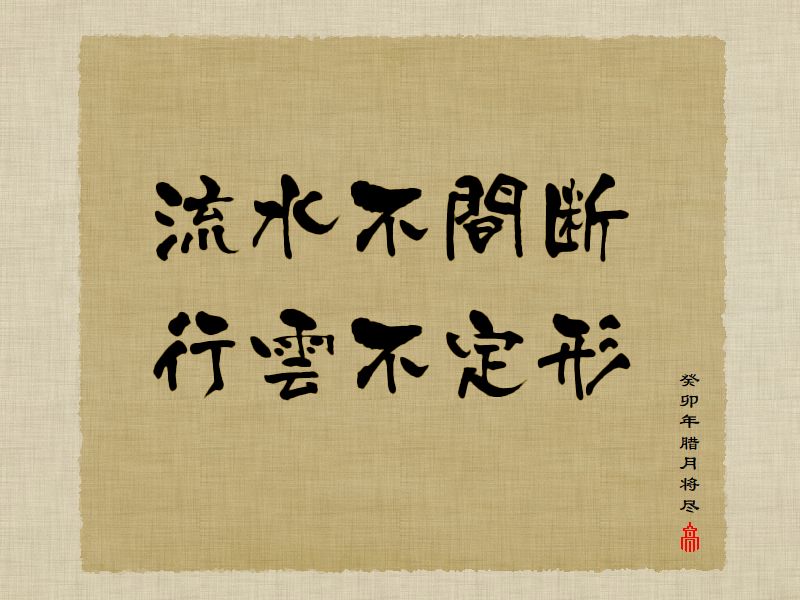 流水不間断
行雲不定形
癸卯年腊月将尽